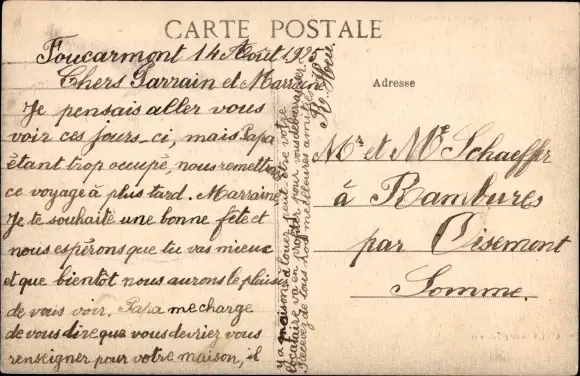 CARTE POSTALE
Foucarmont 14 Août 1925
Chers Parrain et Marraine
Je pensais aller vous
voir ces jours-ci, mais Papa
étant trop occupé, nous remettrons
ce voyage à plus tard. Marraine
Je te souhaite une bonne fête et
nous espérons que tu vas mieux
et que bientôt nous aurons le plaisir
de vous voir. Papa me charge
de vous dire que vous devriez vous
renseigner pour votre maison, il
y a maisons à louer, peut être votre
locataire va en profiter pour vous débarrasser.
Recevez de tous nos meilleures amitiés
Adresse
Mr et Mme Schaeffer
à Rambures
par Oisemont
Somme.